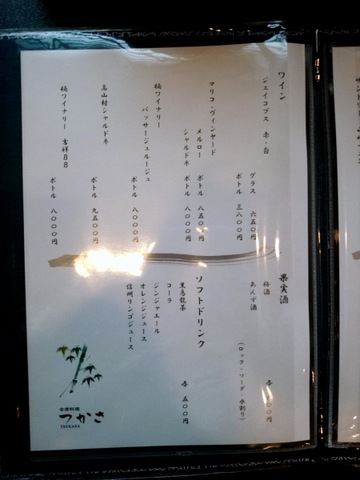 ワイン
ジェイコブス 赤・白
グラス 六五〇円
ボトル 三八〇〇円
マリコ・ヴィンヤード
メルロー ボトル 八五〇〇円
シャルドネ ボトル 八〇〇〇円
楠ワイナリー
バッサージュルージュ
ボトル 八〇〇〇円
高山村シャルドネ
ボトル 九五〇〇円
楠ワイナリー 吉祥BB
ボトル 八〇〇〇円
果実酒
梅酒
あんず酒
(ロック・ソーダ・水割り)
各 〇〇円
ソフトドリンク
黒烏龍茶
コーラ
ジンジャエール
オレンジジュース
信州リンゴジュース
各 五〇〇円
つかさ
TSUKASA